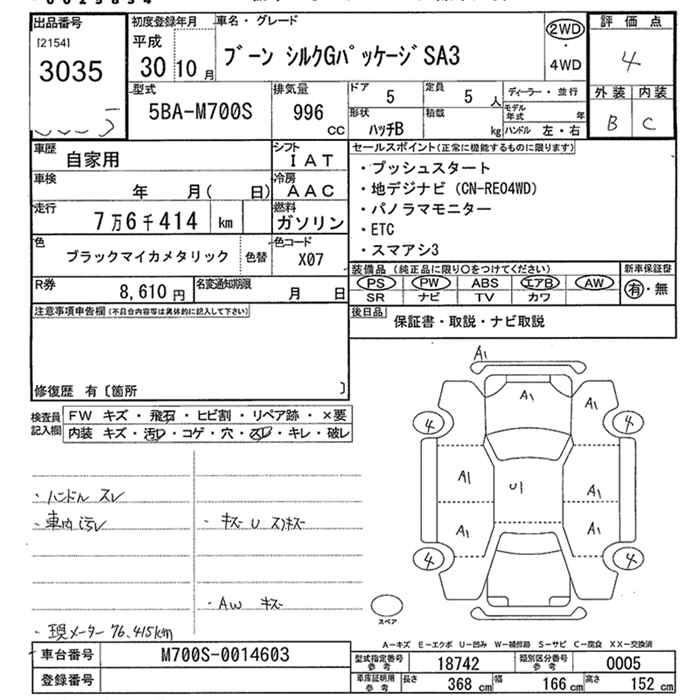 出品番号
[2154]
3035
初度登録年月
平成
30年10月
車名・グレード
ブーン シルクGパッケージSA3
2WD
・
4WD
評価点
4
外装 内装
B C
型式
5BA-M700S
排気量
996
CC
ドア
5
定員
5人
形状
ハッチB
積載
kg
ディーラー・並行
モデル年式 年
ハンドル 左・右
車歴
自家用
シフト
IAT
車検
年 月( 日)
冷房
AAC
走行
7万6千414 km
燃料
ガソリン
色
ブラックマイカメタリック
色替
色コード
X07
R券
8,610円
名変通知期限
月 日
セールスポイント(正常に機能するものに限ります)
・プッシュスタート
・地デジナビ (CN-RE04WD)
・パノラマモニター
・ETC
・スマアシ3
装備品 (純正品に限り○をつけてください)
PS PW ABS エアB AW
SR ナビ TV カワ
新車保証書
有・無
後日品
保証書・取説・ナビ取説
注意事項申告欄(不具合内容等は具体的に記入して下さい)
修復歴 有〔箇所 〕
検査員記入欄
FW キズ・飛石・ヒビ割・リペア跡・×要
内装 キズ・汚レ・コゲ・穴・スレ・キレ・破レ
・ハンドル スレ
・車内 汚レ
・キズ U スリキズ
・AW キズ
・現メーター 76,415km
A1
A1
A1
4
4
A1
U1
A1
A1
A1
4
4
スペア
A-キズ E-エクボ U-凹み W-補修跡 S-サビ C-腐食 XX-交換済
車台番号
M700S-0014603
登録番号
型式指定番号参考
18742
類別区分番号参考
0005
車庫証明用参考
長さ 368 cm
幅 166 cm
高さ 152 cm